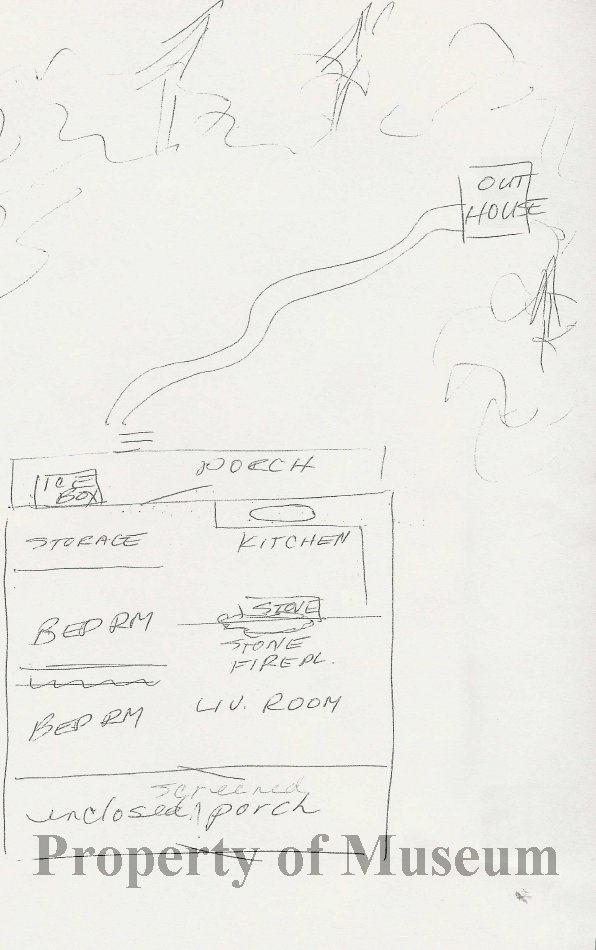 OUT
HOUSE
PORCH
ICE
BOX
STORAGE
KITCHEN
STOVE
BED RM
STONE
FIREPL.
LIV. ROOM
BED RM
screened
unclosed porch
Property of Museum